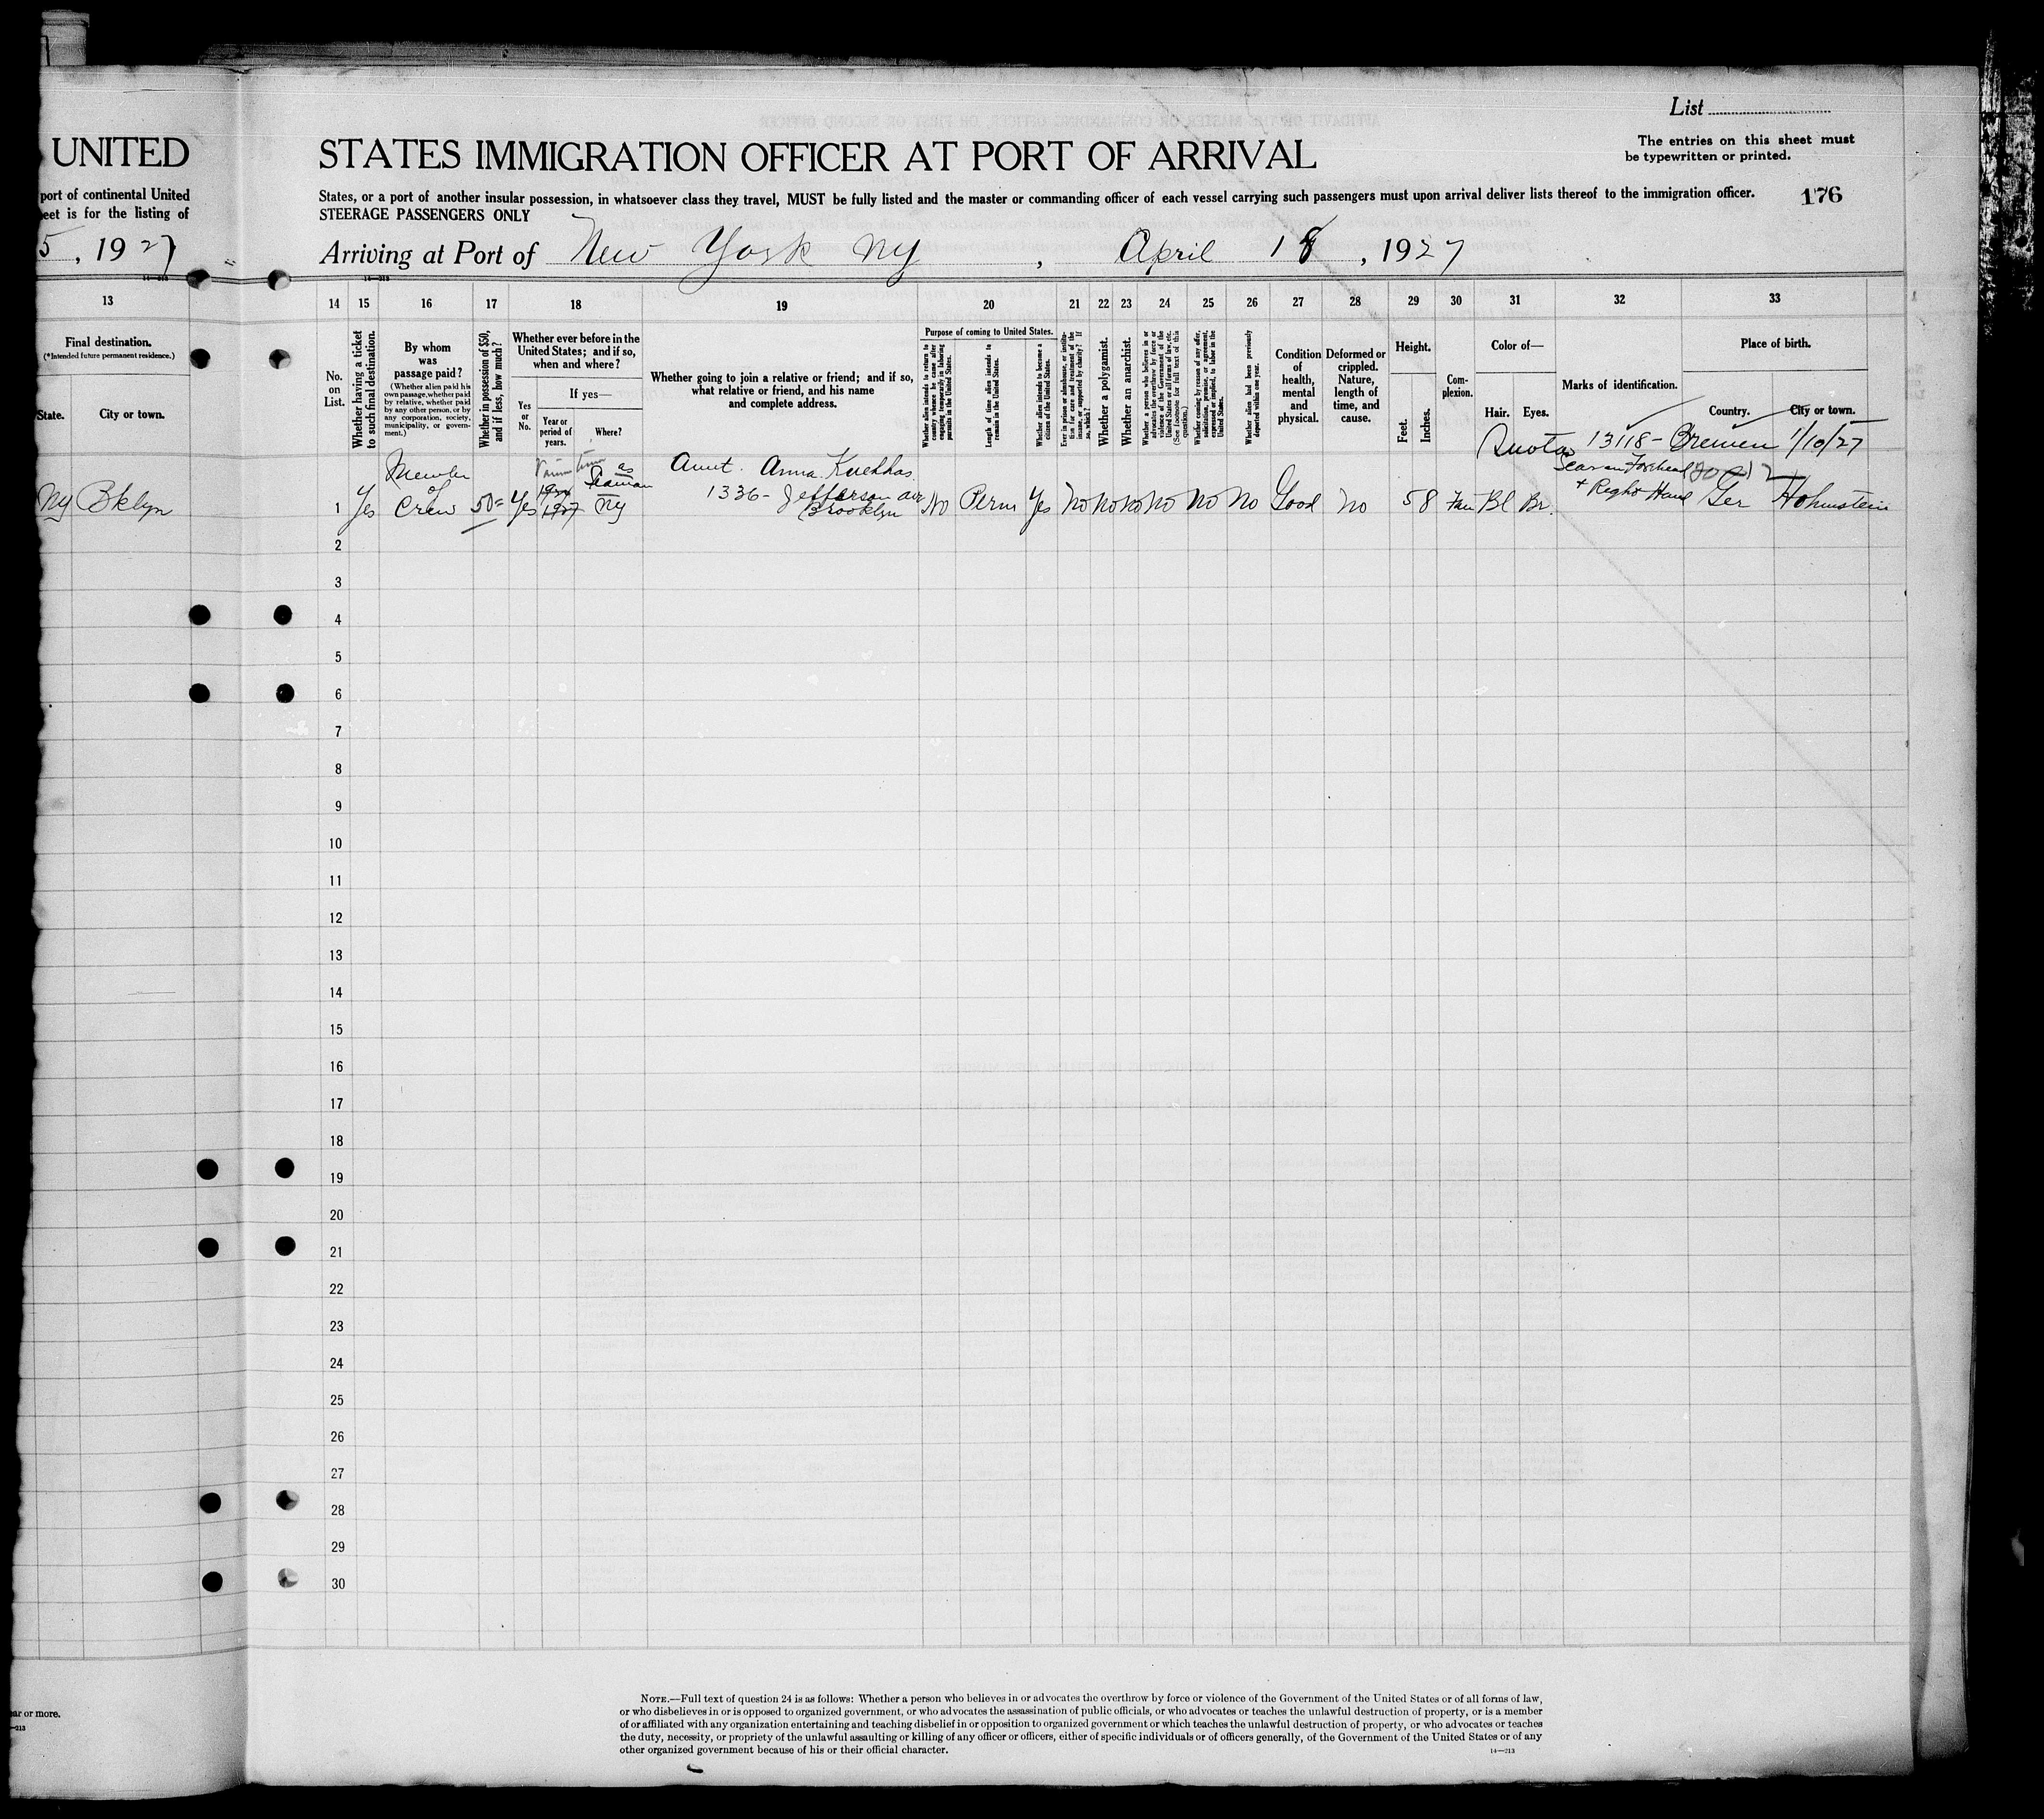 List
The entries on this sheet must
be typewritten or printed.
176
UNITED
port of continental United
eet is for the listing of
5, 1927
STATES IMMIGRATION OFFICER AT PORT OF ARRIVAL
States, or a port of another insular possession, in whatsoever class they travel, MUST be fully listed and the master or commanding officer of each vessel carrying such passengers must upon arrival deliver lists thereof to the immigration officer.
STEERAGE PASSENGERS ONLY
Arriving at Port of New York NY, April 18, 1927
14—213
14—213
13 14 15 16 17 18 19 20 21 22 23 24 25 26 27 28 29 30 31 32 33
Final destination.
(*Intended future permanent residence.)
State.
City or town.
No.
on
List.
Whether having a ticket
to such final destination.
By whom
was
passage paid?
(Whether alien paid his
own passage, whether paid
by relative, whether paid
by any other person, or by
any corporation, society,
municipality, or govern-
ment.)
Whether in possession of $50,
and if less, how much?
Whether ever before in the
United States; and if so,
when and where?
Yes
or
No.
If yes—
Year or
period of
years.
Where?
Whether going to join a relative or friend; and if so,
what relative or friend, and his name
and complete address.
Purpose of coming to United States.
Whether alien intends to return to
country whence he came after
engaging temporarily in laboring
pursuits in the United States.
Length of time alien intends to
remain in the United States.
Whether alien intends to become a
citizen of the United States.
Ever in prison or almshouse, or institu-
tion for care and treatment of the
insane, or supported by charity? If
so, which?
Whether a polygamist.
Whether an anarchist.
Whether a person who believes in or
advocates the overthrow by force or
violence of the Government of the
United States or all forms of law, etc.
(See footnote for full text of this
question.)
Whether coming by reason of any offer,
solicitation, promise, or agreement,
expressed or implied, to labor in the
United States.
Whether alien had been previously
deported within one year.
Condition
of
health,
mental
and
physical.
Deformed or
crippled.
Nature,
length of
time, and
cause.
Height.
Feet.
Inches.
Com-
plexion.
Color of—
Hair. Eyes.
Marks of identification.
Place of birth.
Country.
City or town.
Quota 13118 - Bremen 1/10/27
NY Bklyn
1 Yes
Member
of
Crew
50= Yes
1927
as
Seaman
NY
Aunt. Anna Kuehhas
1336 - Jefferson Ave
Brooklyn
No Perm Yes No No No No No No Good No 5 8 Fair Bl Br.
Scar on Forehead
+ Right Hand
Ger Hohnstein
2
3
4
5
6
7
8
9
10
11
12
13
14
15
16
17
18
19
20
21
22
23
24
25
26
27
28
29
30
ar or more.
—213
NOTE.—Full text of question 24 is as follows: Whether a person who believes in or advocates the overthrow by force or violence of the Government of the United States or of all forms of law,
or who disbelieves in or is opposed to organized government, or who advocates the assassination of public officials, or who advocates or teaches the unlawful destruction of property, or is a member
of or affiliated with any organization entertaining and teaching disbelief in or opposition to organized government or which teaches the unlawful destruction of property, or who advocates or teaches
the duty, necessity, or propriety of the unlawful assaulting or killing of any officer or officers, either of specific individuals or of officers generally, of the Government of the United States or of any
other organized government because of his or their official character.
14—213